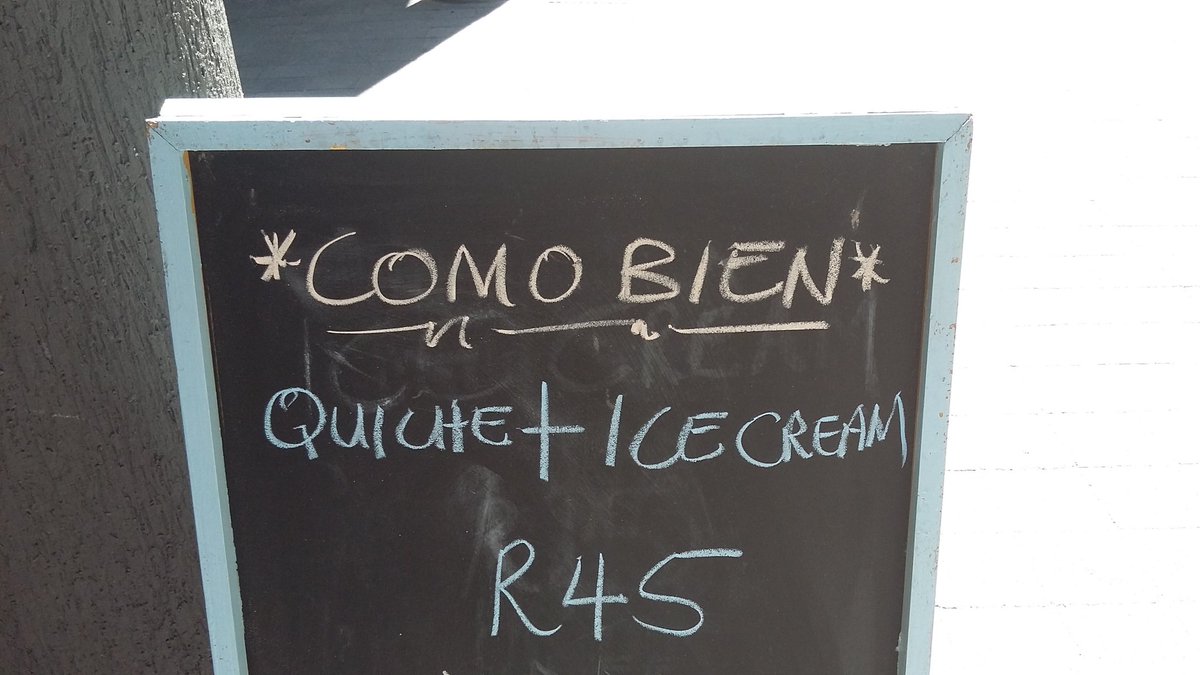 *COMO BIEN*
QUICHE + ICE CREAM
R45